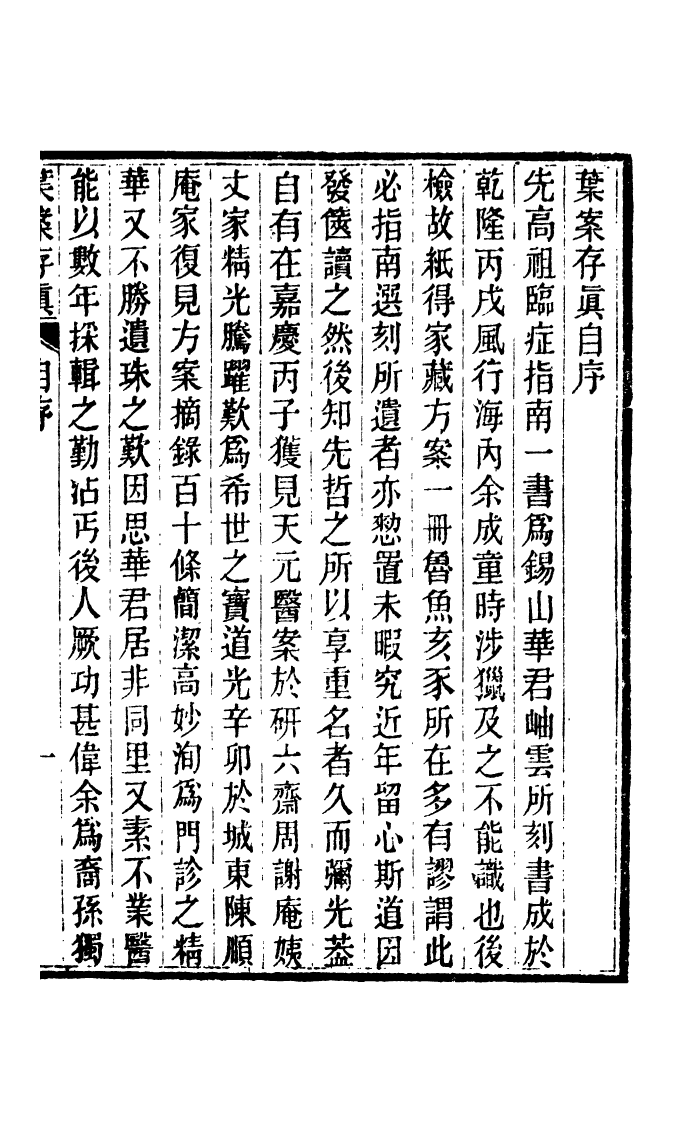 葉案存眞自序
先高祖臨症指南一書爲錫山華君岫雲所刻書成於
乾隆丙戌風行海內余成童時涉獵及之不能識也後
檢故紙得家藏方案一冊魯魚亥豕所在多有謬謂此
必指南選刻所遺者亦恝置未暇究近年留心斯道因
發篋讀之然後知先哲之所以享重名者久而彌光葢
自有在嘉慶丙子獲見天元醫案於研六齋周謝庵姨
丈家精光騰躍歎爲希世之寶道光辛卯於城東陳順
庵家復見方案摘錄百十條簡潔高妙洵爲門診之精
華又不勝遺珠之歎因思華君居非同里又素不業醫
能以數年採輯之勤沾丐後人厥功甚偉余爲裔孫獨
葉案存眞 自序 一